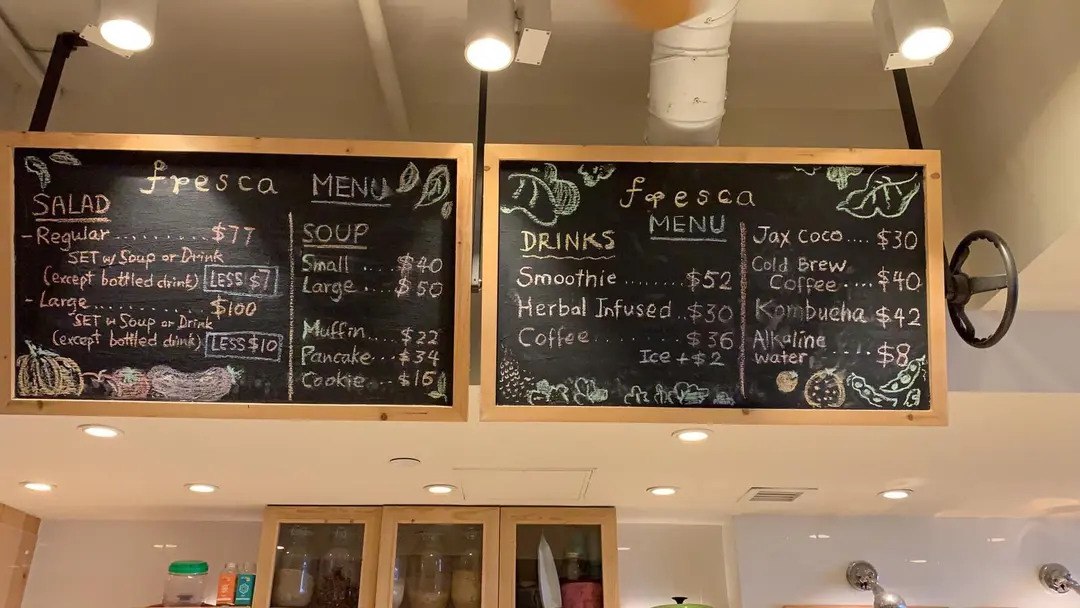 fresca MENU
SALAD
- Regular ......... $77
SET w Soup or Drink
(except bottled drink) LESS $7
- Large ......... $100
SET w Soup or Drink
(except bottled drink) LESS $10
SOUP
Small .... $40
Large .... $50
Muffin .... $22
Pancake ... $34
Cookie ... $16
fresca
MENU
DRINKS
Smoothie ....... $52
Herbal Infused .. $30
Coffee .......... $36
Ice + $2
Jax Coco .... $30
Cold Brew
Coffee .... $40
Kombucha $42
Alkaline
water ..... $8